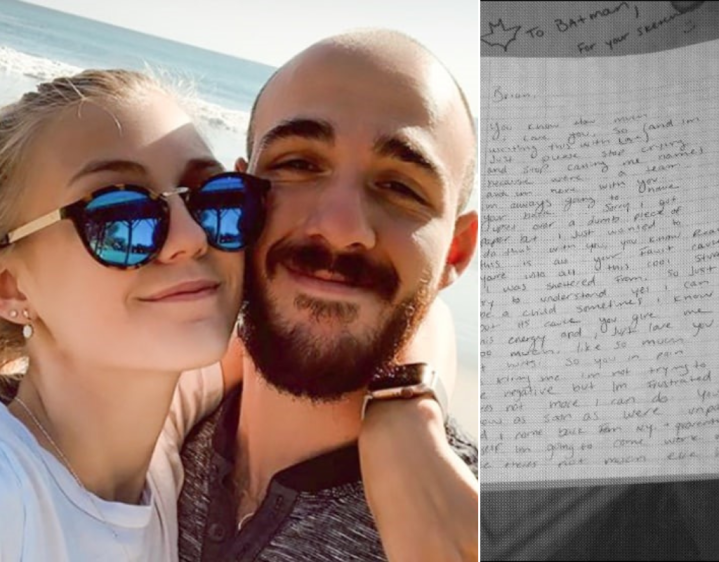 To BAtman,
For your sketch
Brian,
You know how much
I love you, so (and im
writing this with love)
Just please stop crying
and stop calling me names
because were a team
and im here with you.
im always going to have
your back. Sorry i get
upset over a dumb piece of
paper but i just wanted to
do this with you, you know
this is all your fault cause
youre into all this cool
I was sheltered from. So Just
try to understand yes i can
be a child sometimes, i know
but its cause you give me
this energy and i just love you
too much, like so much
it hurts. So you in pain
is killing me. im not trying to
be negative but Im frustrated
theres not more i can do.
as soon as were
i come back from N.Y.
Im going to come work
theres not much else